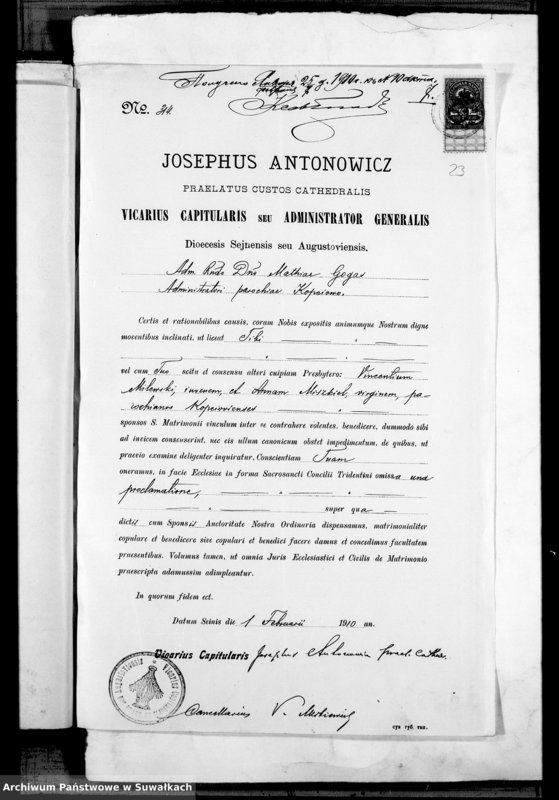 No. 34.
23
JOSEPHUS ANTONOWICZ
PRAELATUS CUSTOS CATHEDRALIS
VICARIUS CAPITULARIS SEU ADMINISTRATOR GENERALIS
Dioecesis Sejnensis seu Augustoviensis.
Adm. Rndo Dno Mathiae Gogas
Administratori parochiae Kopciowo.
Certis et rationabilibus causis, coram Nobis expositis animumque Nostrum digne
moventibus inclinati, ut liceat Tibi
vel cum Tuo scitu et consensu alteri cuipiam Presbytero: Vincentium
Milewski, juvenem, et Annam Miszkiel, virginem, pa-
rochianos Kopciovienses
sponsos S. Matrimonii vinculum inter se contrahere volentes, benedicere, dummodo sibi
ad invicem consenserint, nec eis ullum canonicum obstet impedimentum, de quibus, ut
praevio examine deligenter inquiratur, Conscientiam Tuam
oneramus, in facie Ecclesiae in forma Sacrosancti Concilii Tridentini omissa una
proclamatione,
super qua
dictis cum Sponsis Auctoritate Nostra Ordinaria dispensamus, matrimonialiter
copulare et benedicere sive copulari et benedici facere damus et concedimus facultatem
praesentibus. Volumus tamen, ut omnia Juris Ecclesiastici et Civilis de Matrimonio
praescripta adamussim adimpleantur.
In quorum fidem ect.
Datum Seinis die 1 Februarii 1910 an.
Vicarius Capitularis Josephus Antonowicz prael. Cathedr.
Cancellarius V.
сув. губ. тип.
Archiwum Państwowe w Suwałkach